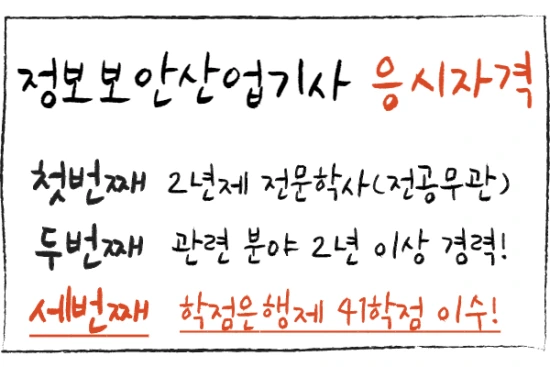 정보보안산업기사 응시자격
첫번째 2년제 전문학사(전공무관)
두번째 관련 분야 2년 이상 경력!
세번째 학점은행제 41학점 이수!